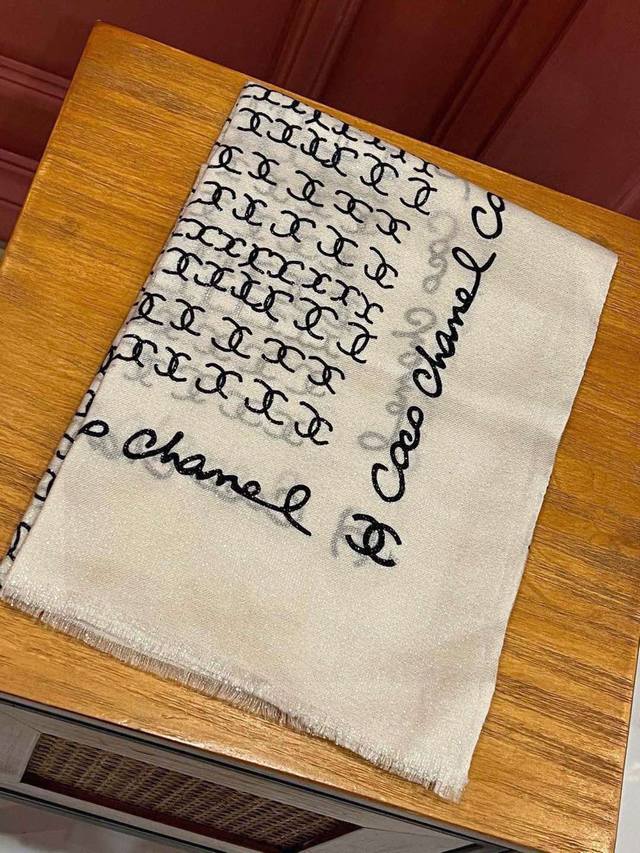 Coco Chanel Co
o Chanel